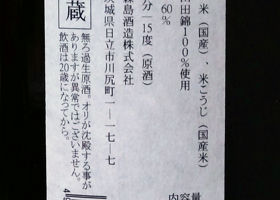 量
内容
米（国産）、米こうじ（国産米）
田錦100％使用
60％
分 15度（原酒）
森島酒造株式会社
茨城県日立市川尻町一ー一七ー七
蔵
無ろ過生原酒。オリが沈殿する事が
ありますが異常ではございません。
飲酒は20歳になってから。